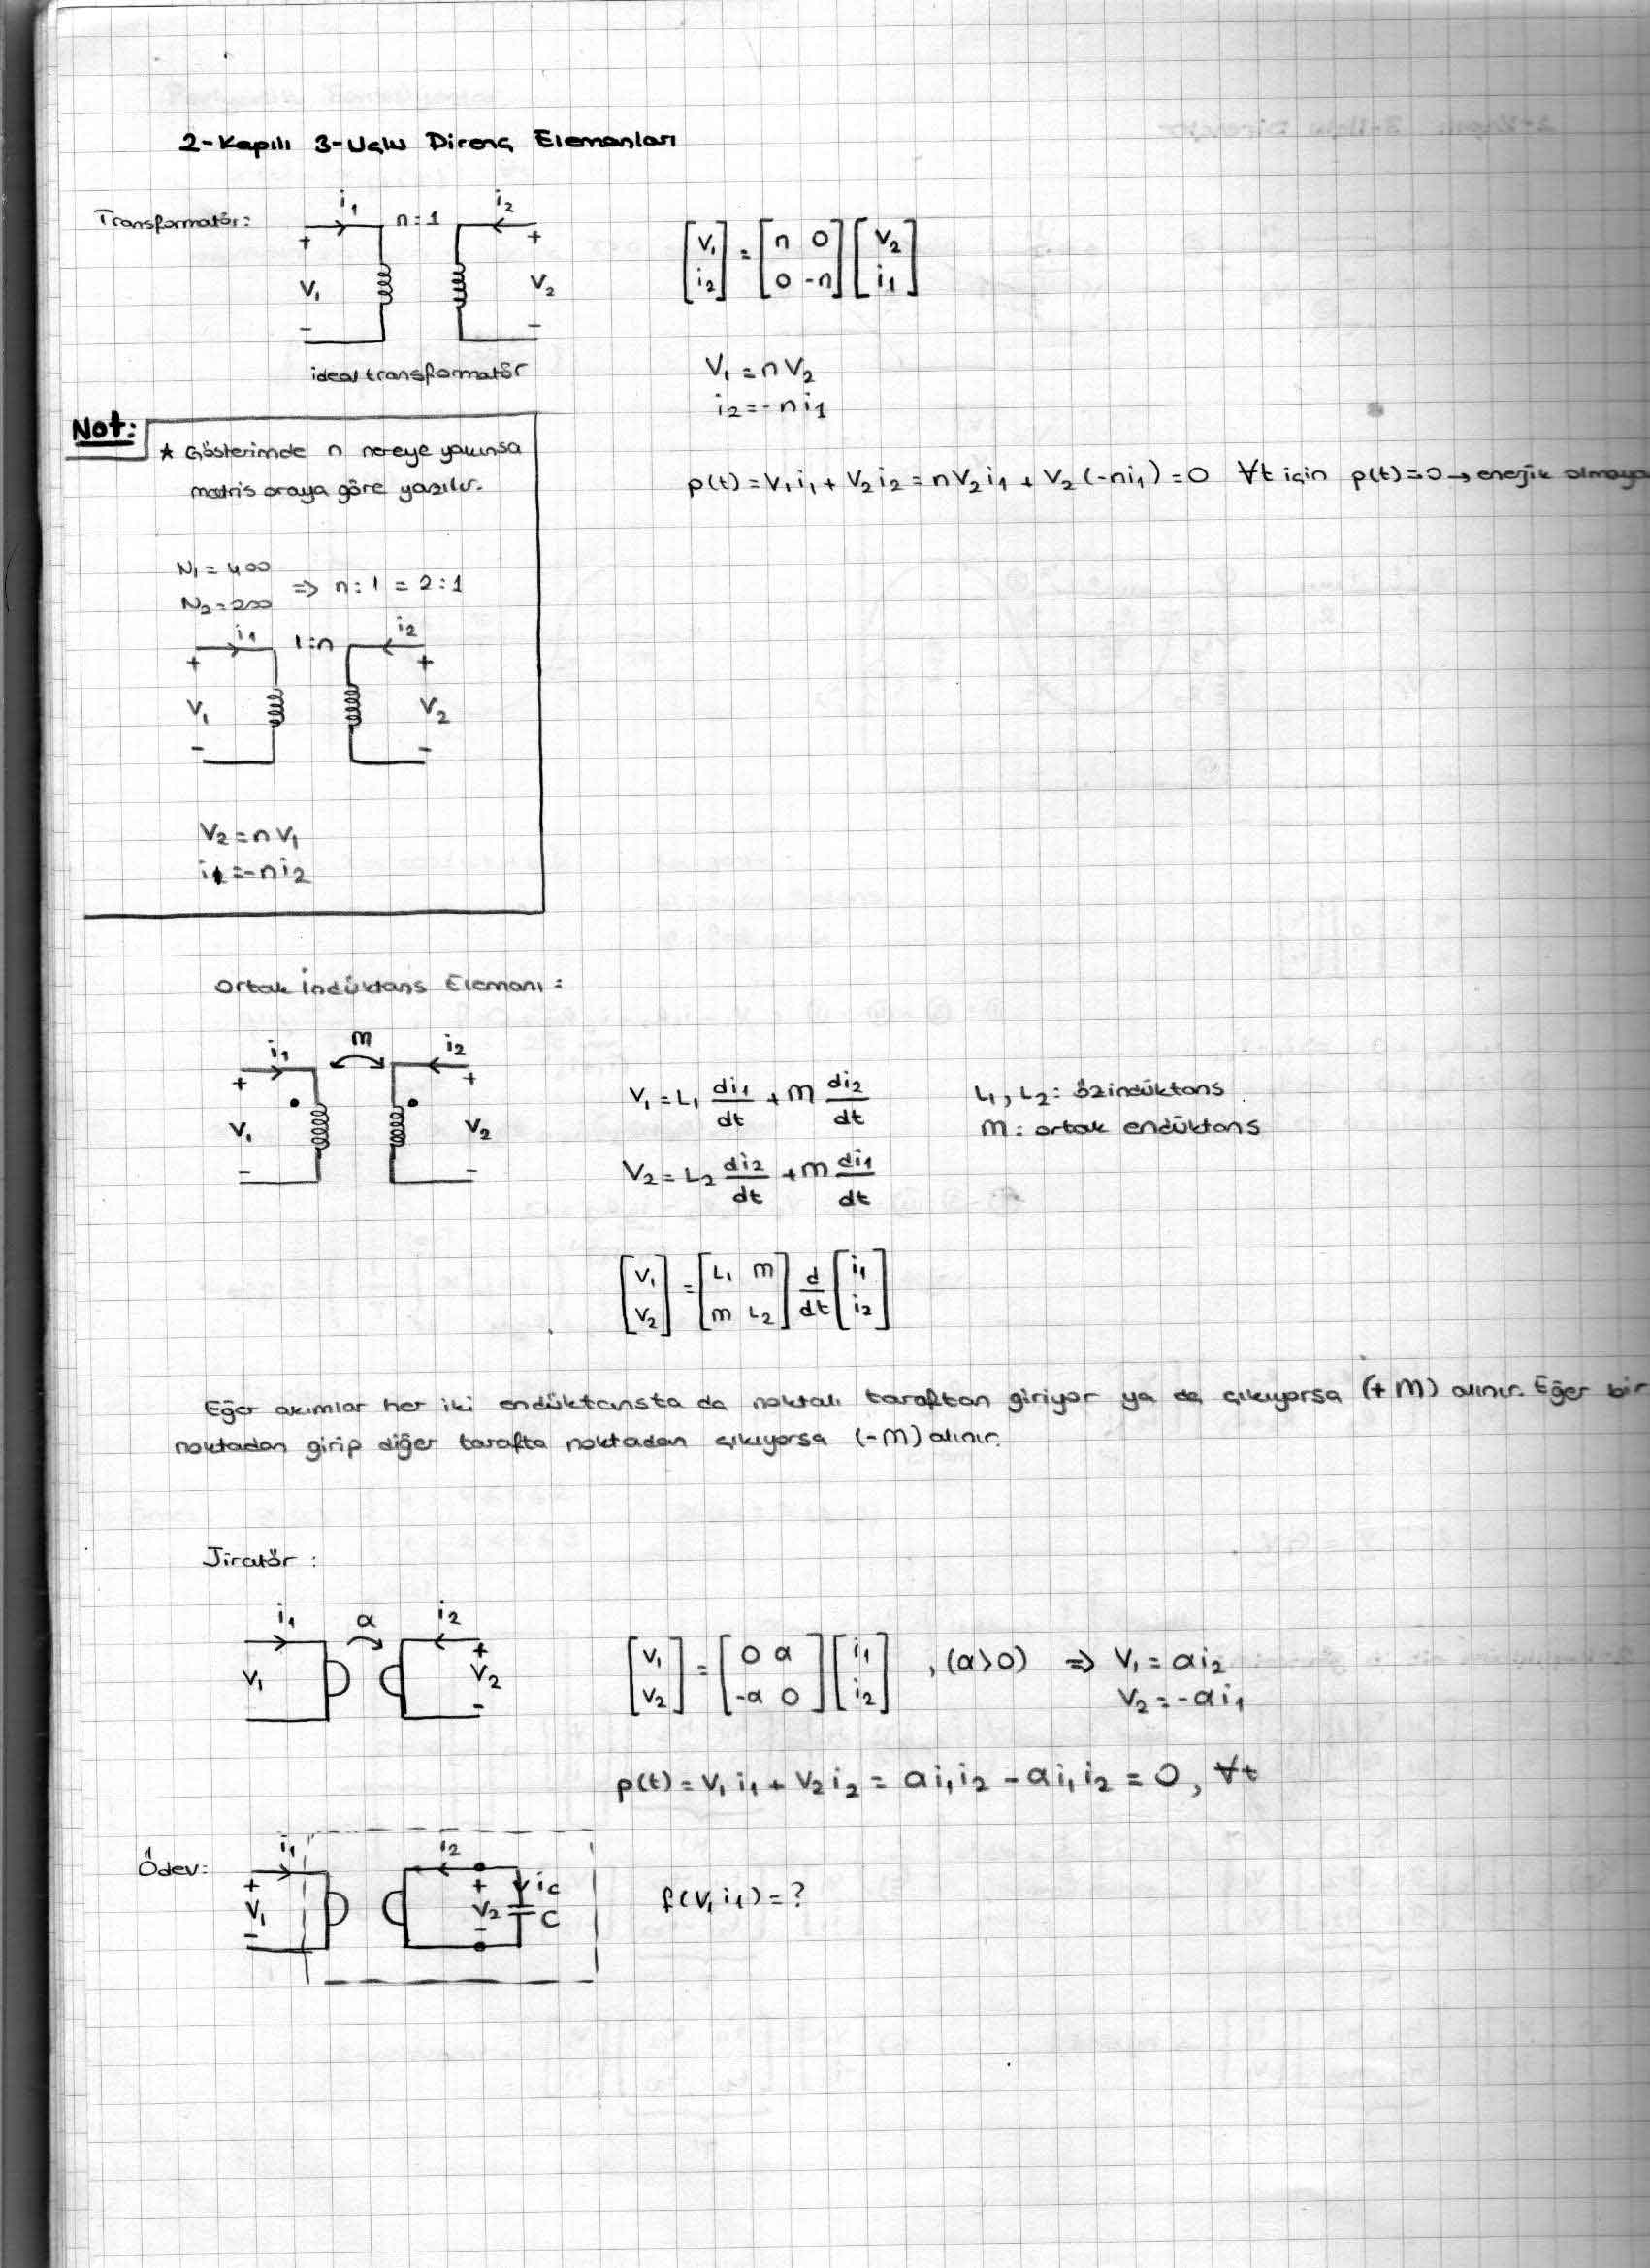 2-Kapılı 3-Uçlu Direnç Elemanları
Transformatör:
i₁ n:1 i₂
+ +
V₁ V₂
- -
ideal transformatör
[V₁ i₂] = [n 0 0 -n] [V₂ i₁]
V₁ = nV₂
i₂ = -ni₁
p(t) = V₁i₁ + V₂i₂ = nV₂i₁ + V₂(-ni₁) = 0 ∀t için p(t)=0 → enerjik olmaya
Not:
* Gösterimde n nereye yakınsa
matris oraya göre yazılır.
N₁ = 400
N₂ = 200
=> n:1 = 2:1
i₁ 1:n i₂
+ +
V₁ V₂
- -
V₂ = nV₁
i₁ = -ni₂
Ortak İndüktans Elemanı:
i₁ m i₂
+ +
V₁ V₂
- -
V₁ = L₁ di₁/dt + m di₂/dt
L₁, L₂: özindüktans
m: ortak endüktans
V₂ = L₂ di₂/dt + m di₁/dt
[V₁ V₂] = [L₁ m m L₂] d/dt [i₁ i₂]
Eğer akımlar her iki endüktansta da noktalı taraftan giriyor ya da çıkıyorsa (+m) alınır. Eğer bir
noktadan girip diğer tarafta noktadan çıkıyorsa (-m) alınır.
Jiratör:
i₁ α i₂
+
V₁ V₂
-
[V₁ V₂] = [0 α -α 0] [i₁ i₂] , (α>0) => V₁ = αi₂
V₂ = -αi₁
p(t) = V₁i₁ + V₂i₂ = αi₁i₂ - αi₁i₂ = 0, ∀t
Ödev:
i₁ i₂
+ + ic
V₁ V₂ C
- -
f(V₁i₁) = ?